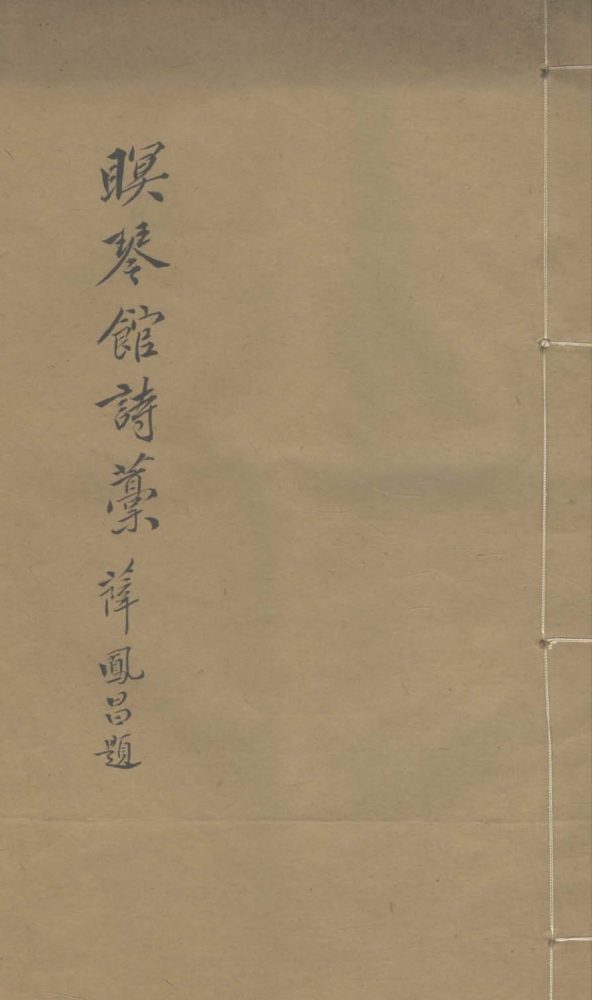 瞑琴館詩藳 薛鳳昌題